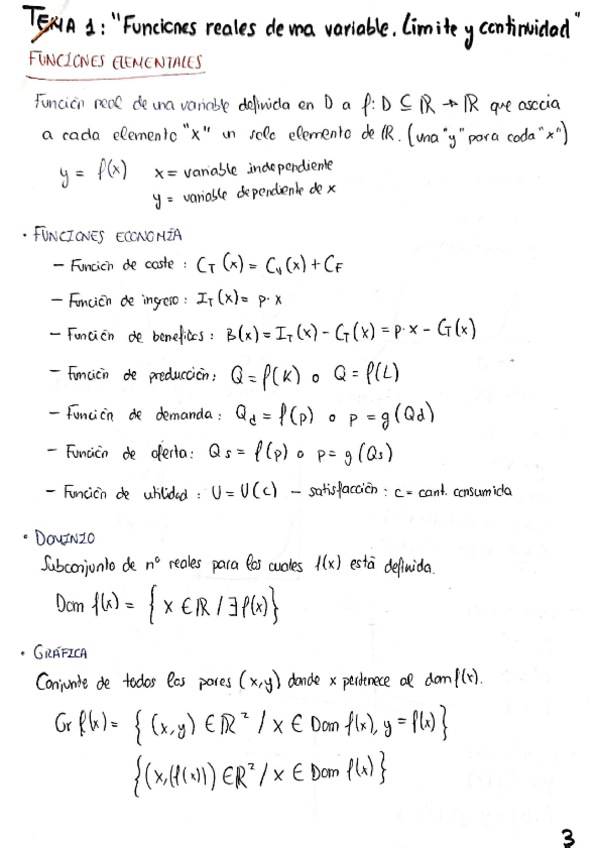 TEMA 1: "Funciones reales de una variable. Límite y continuidad"
FUNCIONES ELEMENTALES
Función real de una variable definida en D a f: D ⊆ ℝ → ℝ que asocia
a cada elemento "x" un solo elemento de ℝ. (una "y" para cada "x")
y = f(x) x = variable independiente
y = variable dependiente de x
· FUNCIONES ECONOMÍA
– Función de coste : C_T (x) = C_v (x) + C_F
– Función de ingreso : I_T (x) = p · x
– Función de benefícios : B(x) = I_T (x) – C_T (x) = p · x – C_T (x)
– Función de producción: Q = f(K) o Q = f(L)
– Función de demanda: Q_d = f(p) o p = g(Q_d)
– Función de oferta: Q_s = f(p) o p = g(Q_s)
– Función de utilidad : U = U(c) – satisfacción : c = cant. consumida
· DOMINIO
Subconjunto de nº reales para los cuales f(x) está definida.
Dom f(x) = { x ∈ ℝ / ∃ f(x) }
· GRÁFICA
Conjunto de todos los pares (x,y) donde x pertenece al dom f(x).
Gr f(x) = { (x,y) ∈ ℝ² / x ∈ Dom f(x), y = f(x) }
{(x,(f(x)) ∈ ℝ² / x ∈ Dom f(x) }
3